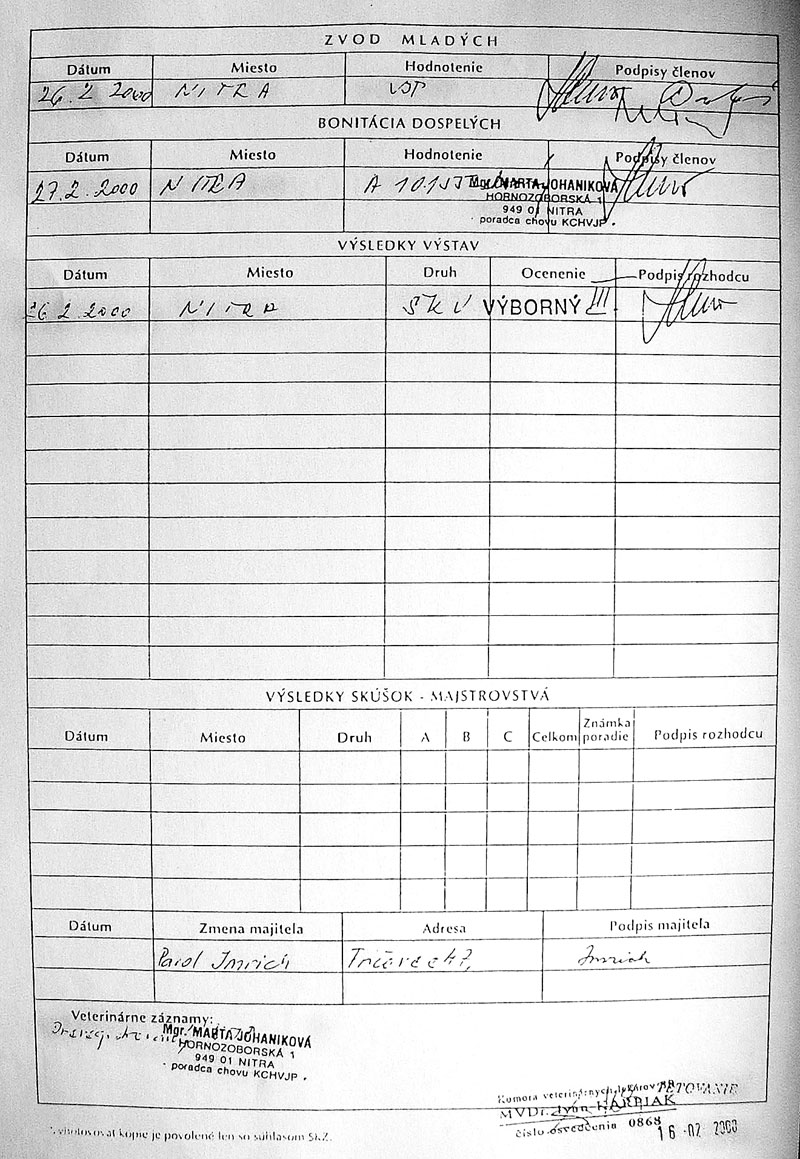 ZVOD MLADÝCH
Dátum Miesto Hodnotenie Podpisy členov
26.2 2000 NITRA
BONITÁCIA DOSPELÝCH
Dátum Miesto Hodnotenie Podpisy členov
27.2.2000 NITRA A
Mgr. MARTA JOHANIKOVÁ
HORNOZOBORSKÁ 1
949 01 NITRA
poradca chovu KCHVJP.
VÝSLEDKY VÝSTAV
Dátum Miesto Druh Ocenenie Podpis rozhodcu
26 2.2000 NITRA SKV VÝBORNÝ III
VÝSLEDKY SKÚŠOK - MAJSTROVSTVÁ
Dátum Miesto Druh A B C Celkom Známka poradie Podpis rozhodcu
Dátum Zmena majitela Adresa Podpis majitela
Pavol Imrich Imrich
Veterinárne záznamy:
Mgr. MARTA JOHANIKOVÁ
HORNOZOBORSKÁ 1
949 01 NITRA
poradca chovu KCHVJP.
Komora veterinárnych lekárov
MVDr. Ivan
číslo osvedčenia 0868
TETOVANIE
16 -02 2000
Vyhotovovať kópie je povolené len so súhlasom SKZ.